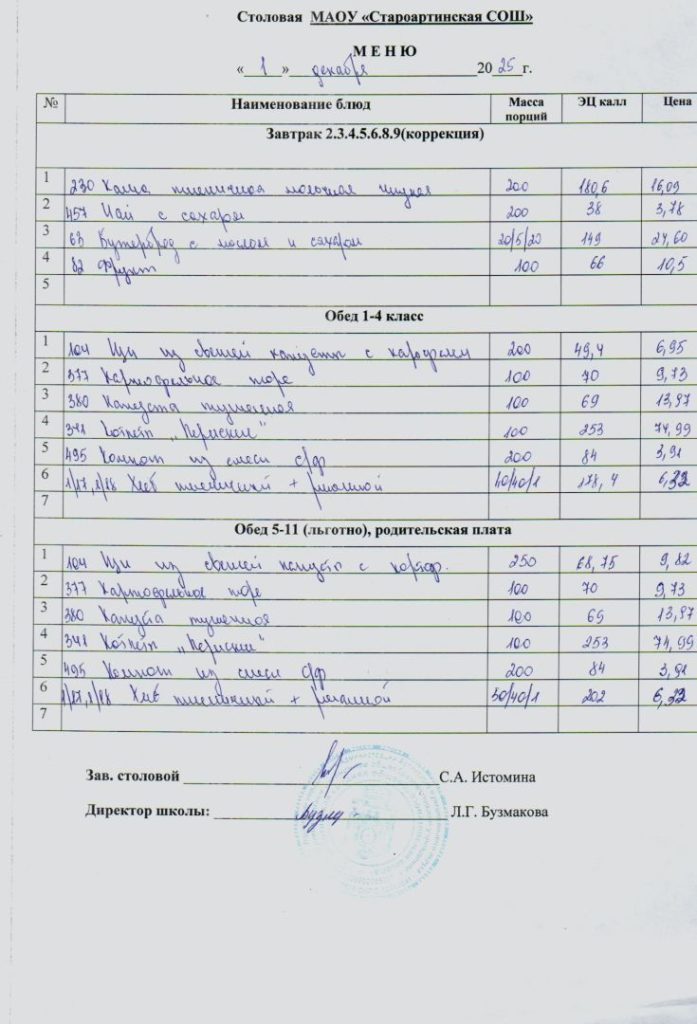 Столовая МАОУ «Староартинская СОШ»
М Е Н Ю
« 1 » декабря 2025 г.
№ Наименование блюд Масса порций ЭЦ калл Цена
Завтрак 2.3.4.5.6.8.9(коррекция)
1 230 Каша пшеничная молочная жидкая 200 180,6 16,09
2 457 Чай с сахаром 200 38 3,78
3 63 Бутерброд с маслом и сахаром 20/5/20 149 24,60
4 82 Фрукт 100 66 10,5
5
Обед 1-4 класс
1 104 Щи из свежей капусты с картофелем 200 49,4 6,95
2 377 Картофельное пюре 100 70 9,73
3 380 Капуста тушенная 100 69 13,97
4 341 Котлеты „Пермские" 100 253 74,99
5 495 Компот из смеси с/ф 200 84 3,91
6 1/17,1/18 Хлеб пшеничный + ржаной 40/40/1 178,4 6,32
7
Обед 5-11 (льготно), родительская плата
1 104 Щи из свежей капусты с картоф. 250 68,75 9,82
2 377 Картофельное пюре 100 70 9,73
3 380 Капуста тушенная 100 69 13,97
4 341 Котлеты „Пермские" 100 253 74,99
5 495 Компот из смеси с/ф 200 84 3,91
6 1/17,1/18 Хлеб пшеничный + ржаной 50/40/1 202 6,32
7
Зав. столовой С.А. Истомина
Директор школы: Л.Г. Бузмакова